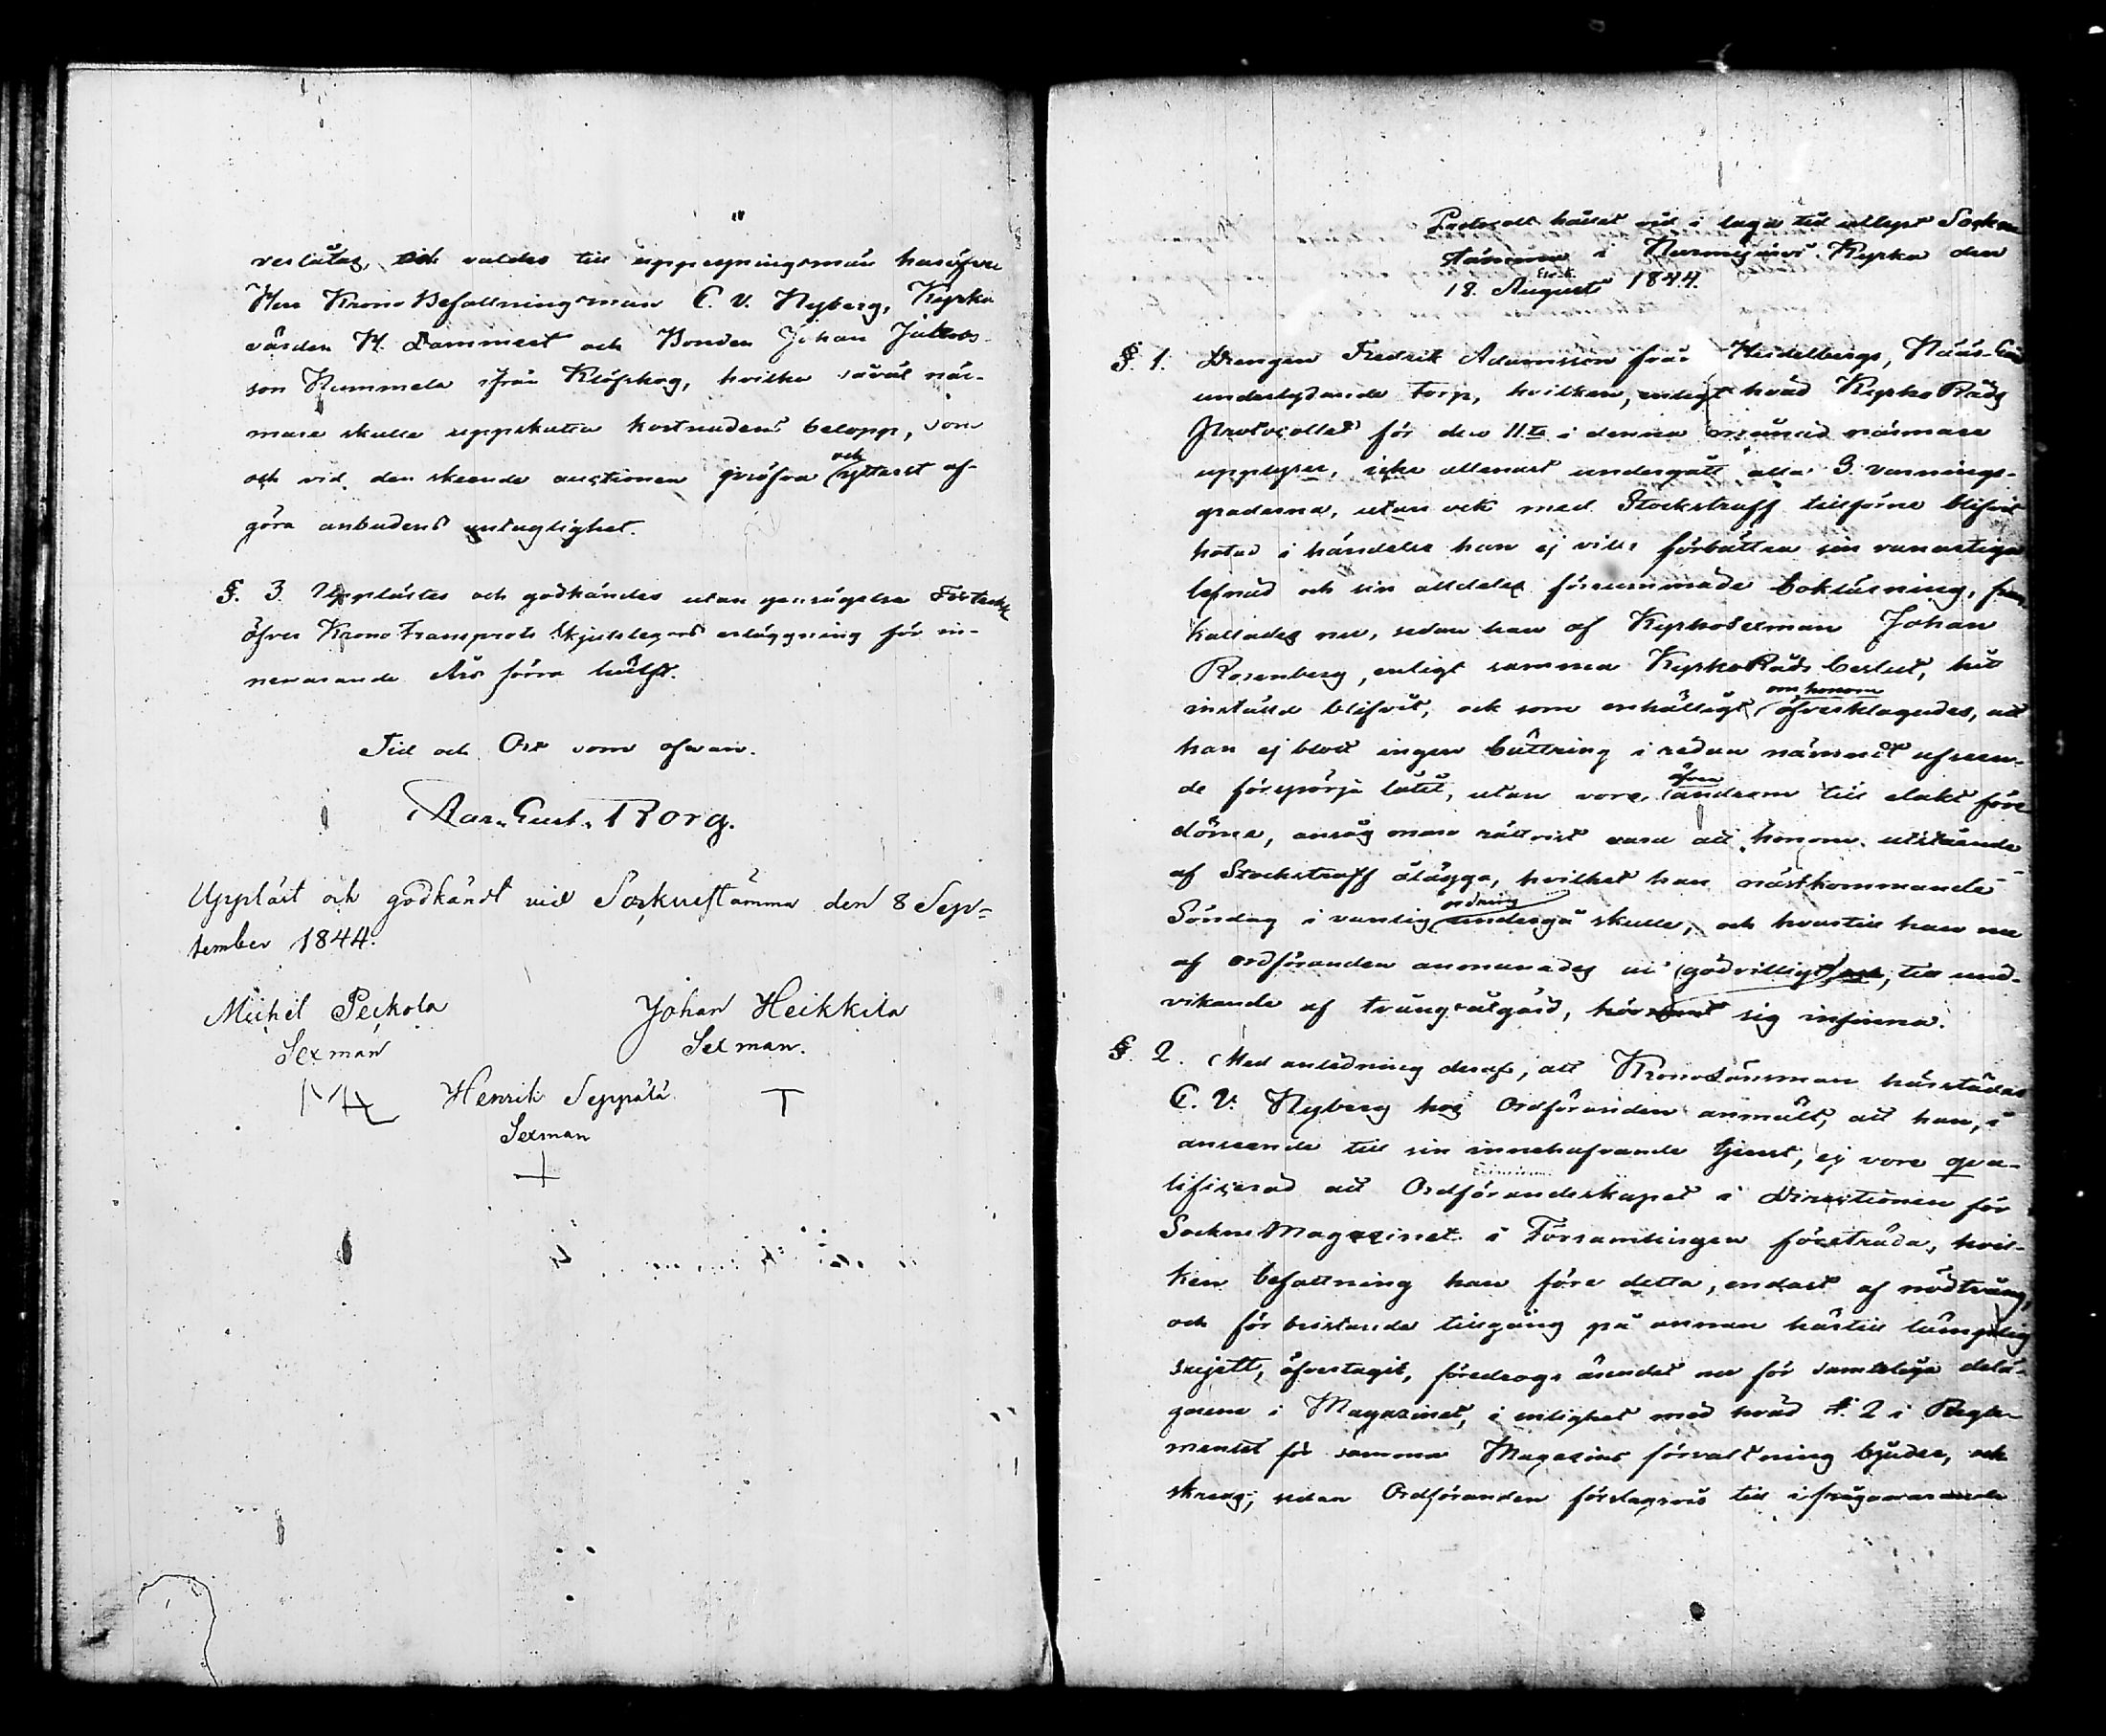 verlåtas, och valdes till uppsyningsmän häröfver
Herr Krono Befallningsman C. V. Nyberg, Kyrko
värden H. Dammert och Bonden Johan Jakobs-
son Hummela ifrån Klöfskog, hvilka såväl när-
mare skulle uppskatta kostnadens belopp, som
och vid den skeende auctionen pröfva och yttarst af-
göra anbudens antaglighet.
§. 3. Upplästes och godkändes utan gensägelse Förteckn
öfver Krono Transports Skjutslegans erläggning för in-
nevarande års förra hälft.
Tid och Ort som ofvan.
Gust. Borg.
Uppläst och godkändt vid Sockenstämma den 8 Sep-
tember 1844.
Michel Peckola Johan Heikkila
Sexman Sexman.
Henrik Seppälä
Sexman
Protocoll hållet vid i laga tid utlyst Socken
stämma i Nurmijärvi Kyrka den
18. Augusti 1844.
§. 1. Drengen Fredrik Adamsson från Heidelbergs, Nääs Gård
underlydande torp, hvilken, enligt hvad Kyrko Råds
Protocollet för den 11te i denna månad närmare
upplyser, icke allenast undergått alla 3 varnings-
graderna, utan ock med Stockstraff tillförne blifvit
hotad i händelse han ej ville förbättra sin vanartiga
lefnad och sin alldeles försummade bokläsning, fram
kallades nu, sedan han af Kyrko Sexman Johan
Rosenberg, enligt samma Kyrko Råds beslut, hit
inställd blifvit, och som enhälligt om honom öfverklagades, att
han ej blott ingen bättring i redan nämndt afseen-
de förspörja låtit, utan vore äfven androm till elakt före
döme, ansåg man rättvist vara att honom utstående
af Stockstraff ålägga, hvilket han nästkommande
Söndag i vanlig ordning undergå skulle, och hvartill han nu
af ordföranden anmanades att godvilligt, till und-
vikande af trångsatgärd, sig infinna.
§. 2. Med anledning deraf, att Krono Länsman härstädes
C. V. Nyberg hos Ordföranden anmält, att han, i
anseende till sin innehafvande tjenst, ej vore qva-
lificerad att Ordförandeskapet i Directionen för
Sockne Magazinet i Församlingen förestråda, hvil-
ken befattning han före detta, endast af nödtvång,
och för bristande tillgång på annan härtill lämpelig
sujett, öfvertagit, föredrogs ärendet nu för samtelige delä-
garene i Magazinet, i enlighet med hvad §. 2 i Regle-
mentet för samma Magazins förvaltning bjuder, och
skreds, sedan Ordföranden förslagsvis till ifrågavarande